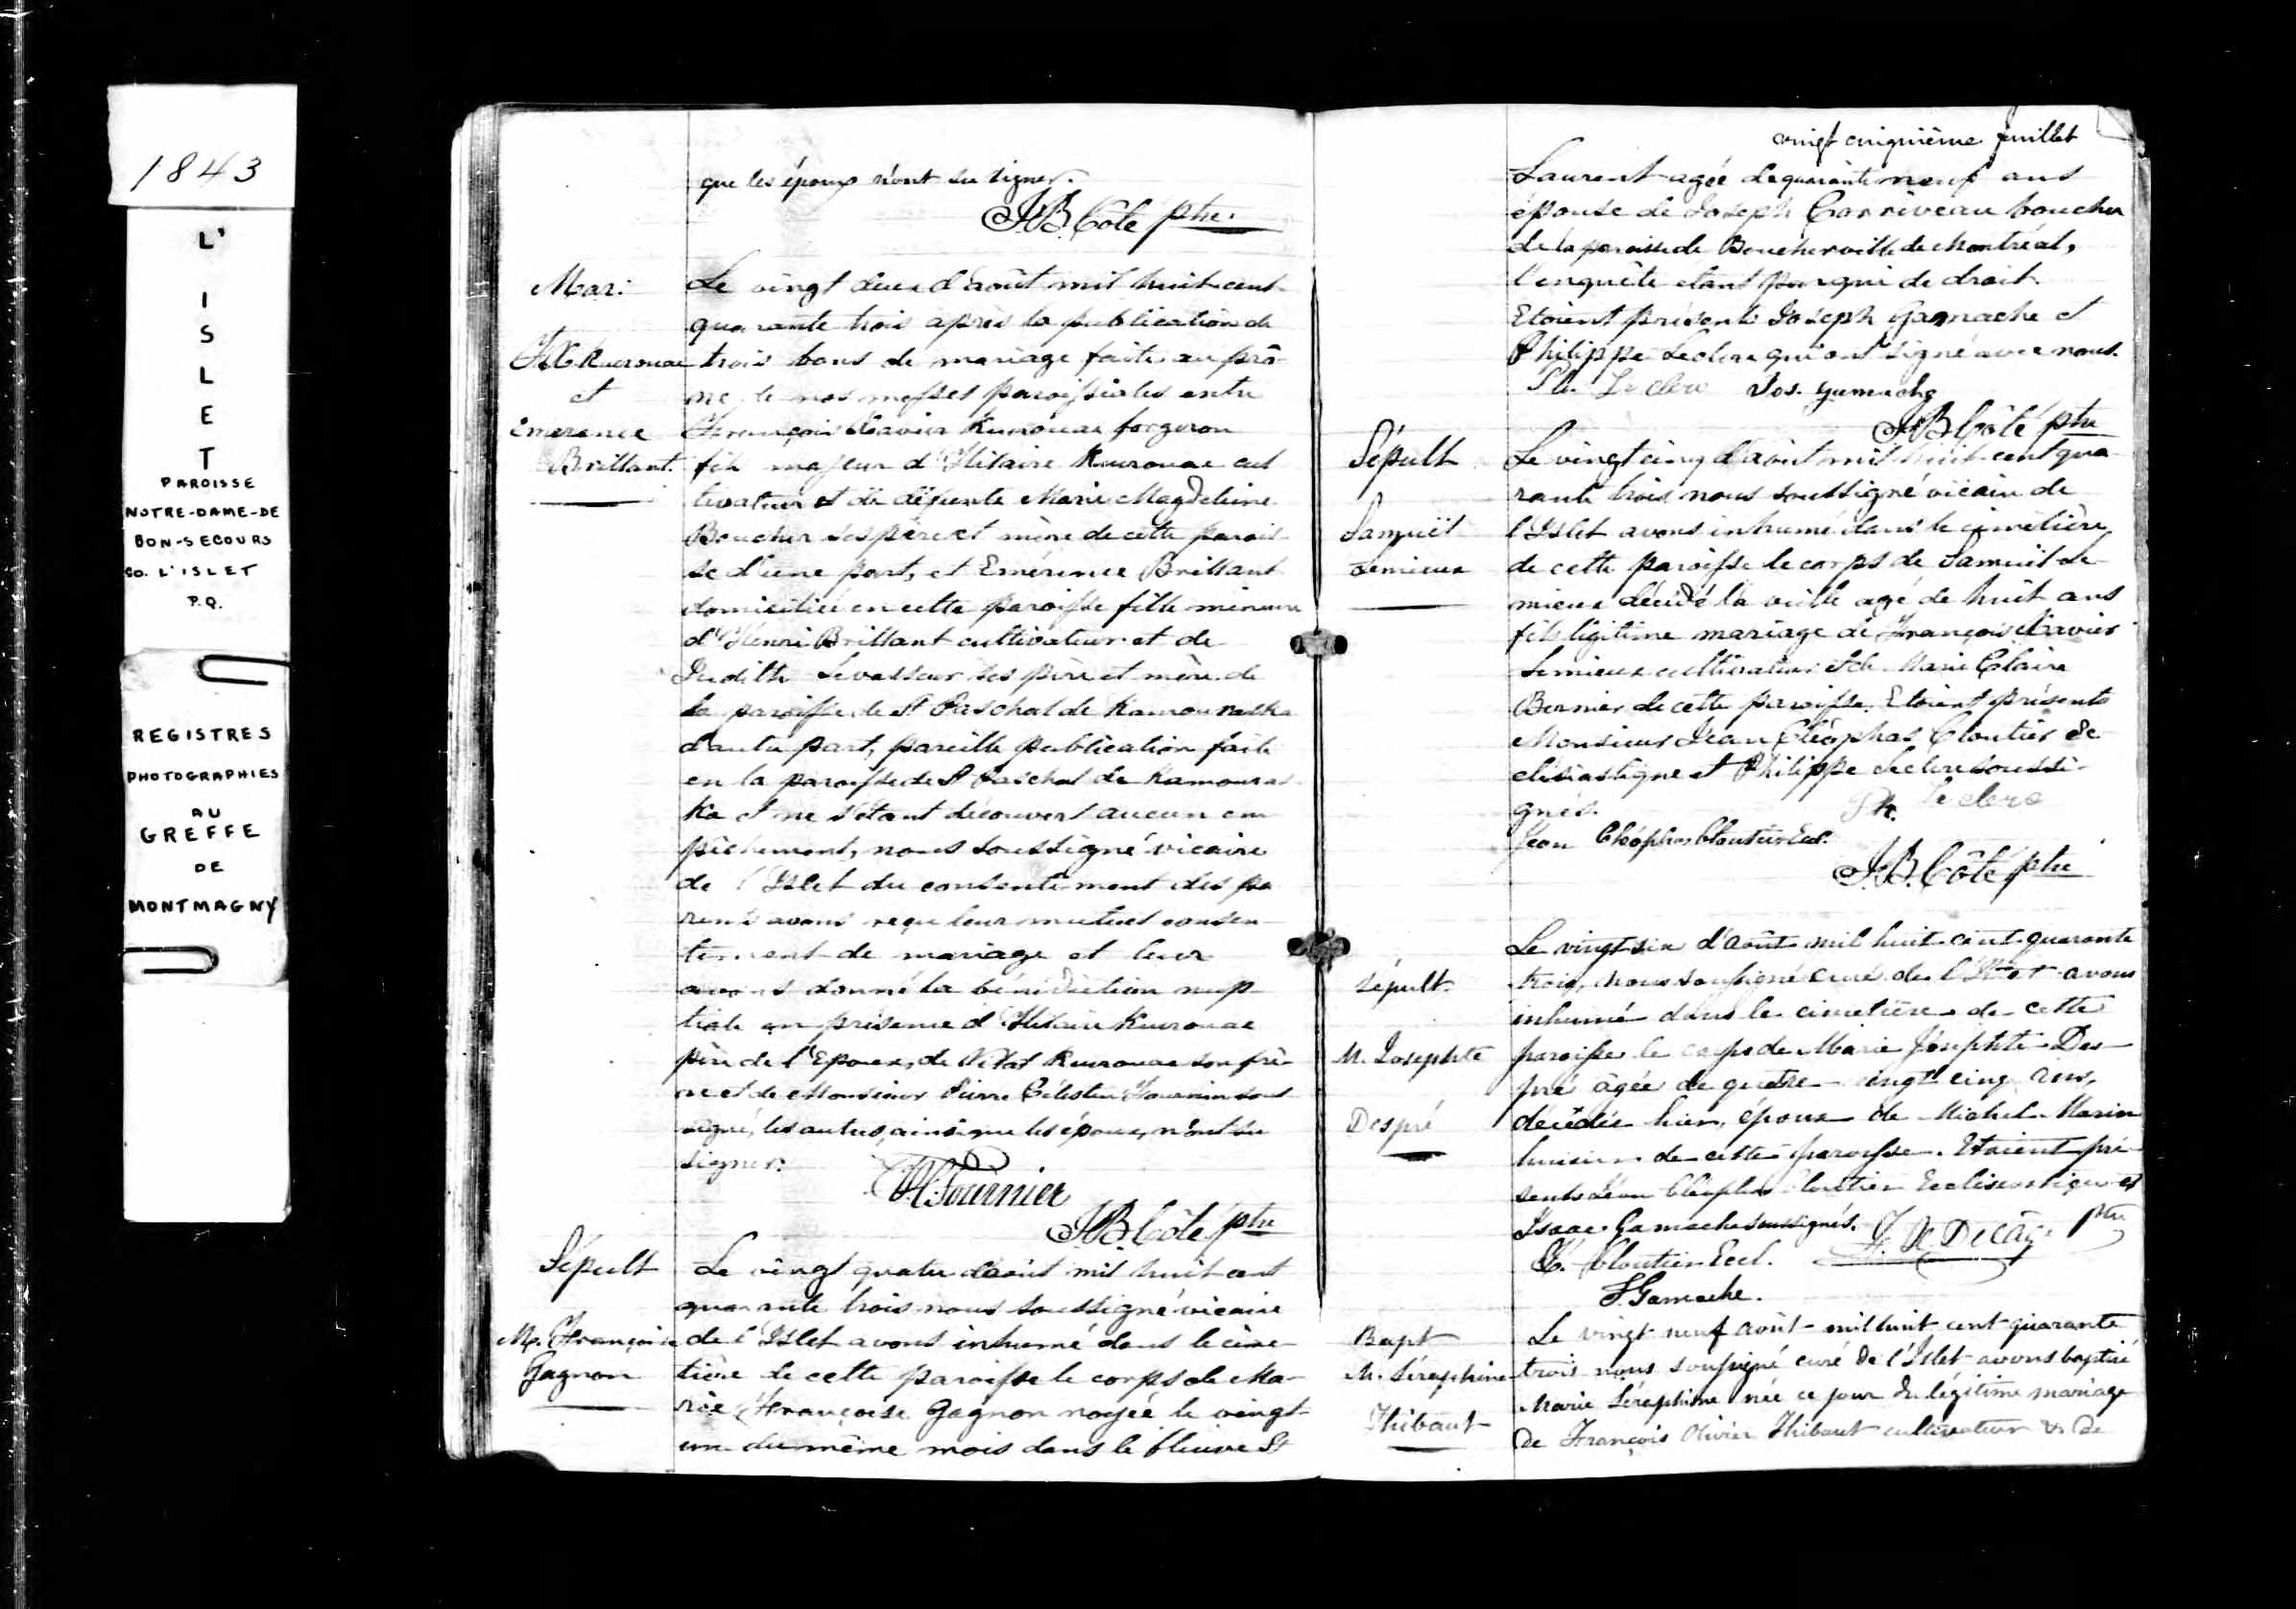 1843
L'
I
S
L
E
T
PAROISSE
NOTRE-DAME-DE
BON-SECOURS
CO. L'ISLET
P.Q.
REGISTRES
PHOTOGRAPHIES
AU
GREFFE
DE
MONTMAGNY
que les époux n'ont su signer.
J.B. Côté ptre.
Mar:
F.X. Kuerouac
et
Emerence
Brillant.
Le vingt deux d'août mil huit cent
quarante trois après la publication de
trois bans de mariage faite au prô-
ne de nos messes paroissiales entre
François Xavier Kuerouac forgeron
fils majeur d'Hilaire Kuerouac cul
tivateur et de défunte Marie Magdeleine
Boucher ses père et mère de cette parois
se d'une part, et Emérence Brillant
domiciliée en cette paroisse fille mineure
d'Henri Brillant cultivateur et de
Judith Levasseur ses père et mère de
la paroisse de St Paschal de Kamouraska
d'autre part, pareille publication faite
en la paroisse de St Paschal de Kamouras
ka et ne s'étant découvert aucun em
pêchement, nous soussigné vicaire
de l'Islet du consentement des pa
rents avons reçu leur mutuel consen
tement de mariage et leur
avons donné la bénédiction nup
tiale en présence d'Hilaire Kuerouac
père de l'Epoux, de Vital Kuerouac son frè-
re et de Monsieur Pierre Célestin Fournier sous
signé, les autres, ainsi que les époux, n'ont su
signer.
Fournier
J.B. Côté ptre
Sépult
M. Françoise
Gagnon
Le vingt quatre d'août mil huit cent
quarante trois nous soussigné vicaire
de l'Islet avons inhumé dans le cime-
tière de cette paroisse le corps de Ma-
rie Françoise Gagnon noyée le vingt
un du même mois dans le fleuve St
vingt cinquième feuillet
Laurent agée de quarante neuf ans
épouse de Joseph Corriveau boucher
de la paroisse de Boucherville de Montréal,
l'enquête étant par qui de droit.
Etoient présents Joseph Gamache et
Philippe Leclerc qui ont signé avec nous.
Ph. Leclerc Jos. Gamache
J.B. Côté ptre
Sépult
Samuël
Lemieux
Le vingt cinq d'août mil huit cent qua
rante trois nous soussigné vicaire de
l'Islet avons inhumé dans le cimetière
de cette paroisse le corps de Samuël Le-
mieux décédé la veille agé de huit ans
fils légitime mariage de François Xavier
Lemieux cultivateur et de Marie Claire
Bernier de cette paroisse. Etoient présents
Monsieur Jean Cléophas Cloutier Ec
clésiastique et Philippe Leclerc soussi-
gnés.
Ph. Leclerc
Jean Cléophas Cloutier Eccl.
J.B. Côté ptre
Sépult.
M. Josephte
Despré
Le vingt-six d'Août mil huit-cent quarante
trois, nous soussigné curé de l'Islet avons
inhumé dans le cimetière de cette
paroisse le corps de Marie Josephte Des-
pré âgée de quatre-vingt cinq ans,
décédée hier, épouse de Michel Morin
huissier de cette paroisse. Etaient pré-
sents Jean Cléophas Cloutier Ecclésiastique et
Isaac Gamache soussignés.
ptre
Cloutier Eccl.
I Gamache.
Bapt
M. Séraphine
Thibaut
Le vingt neuf août mil huit cent quarante
trois nous soussigné curé de l'Islet avons baptisé
Marie Séraphine née ce jour du légitime mariage
de François Olivier Thibaut cultivateur & de